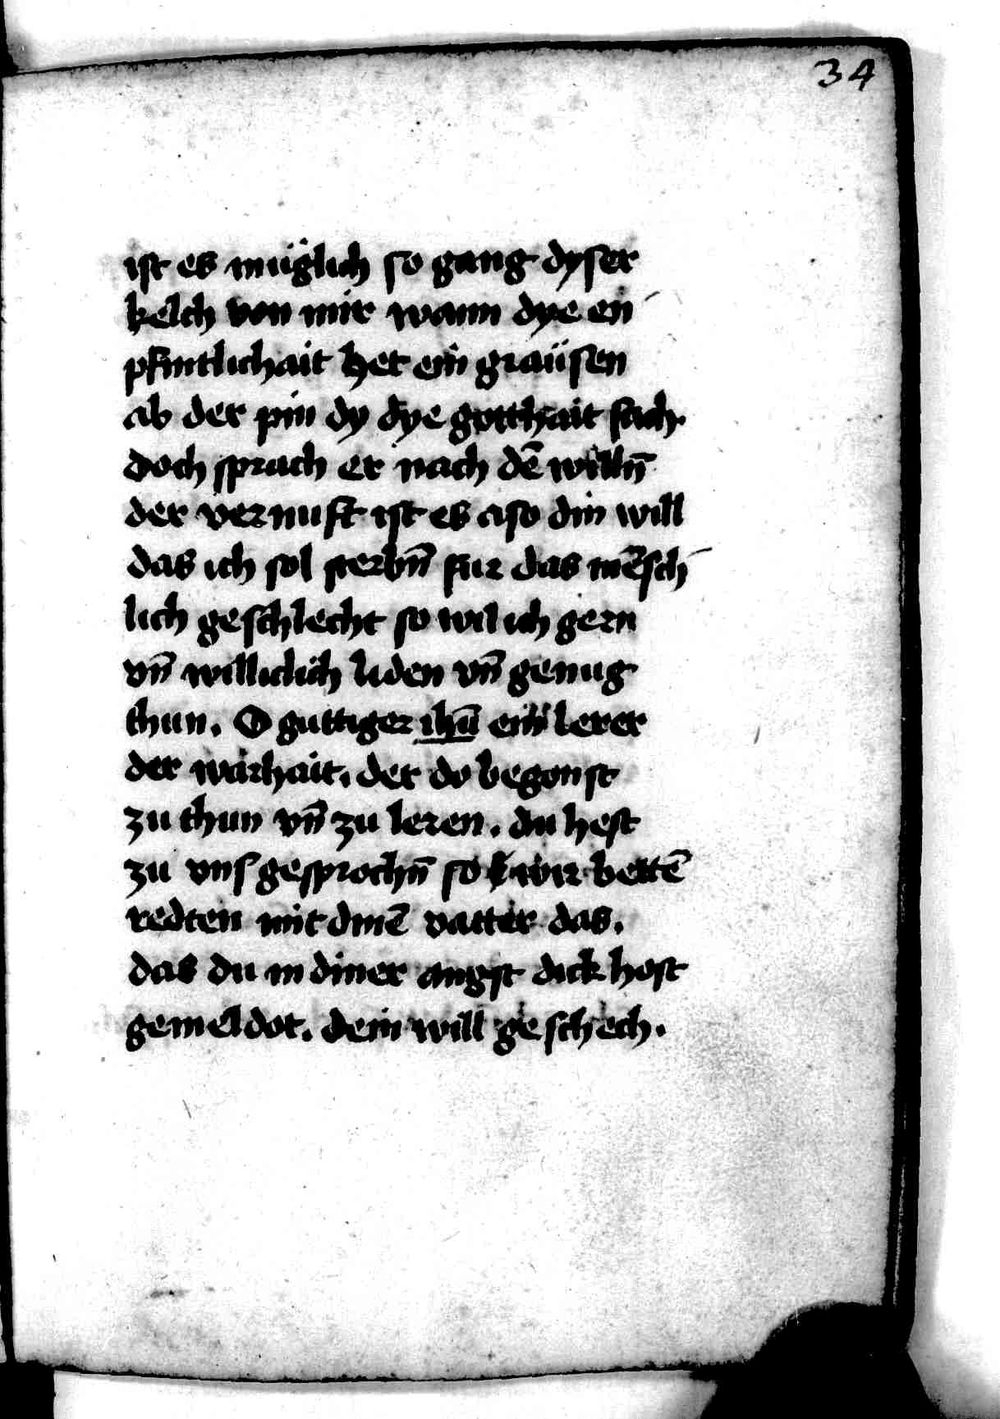 34
ist es müglich so gang dyser
kelch von mir wann dye en
pfintlichait het ein graüsen
ab der pin dy dye gotthait sach.
doch sprach er nach dē willn̄
der vernuft ist es aso din will
das ich sol sterbn̄ fur das mēsch
lich geschlecht so wil ich gern
vn̄ williclich liden vn̄ genug
thun. O guttiger ihū ein lerer
der warhait. der do begonst
zu thun vn̄ zu leren. du hest
zu vns gesprochn̄ so wir bettē
redten mit dinē vatter das.
das du in diner angst dick host
gemeldot. dein will geschech.